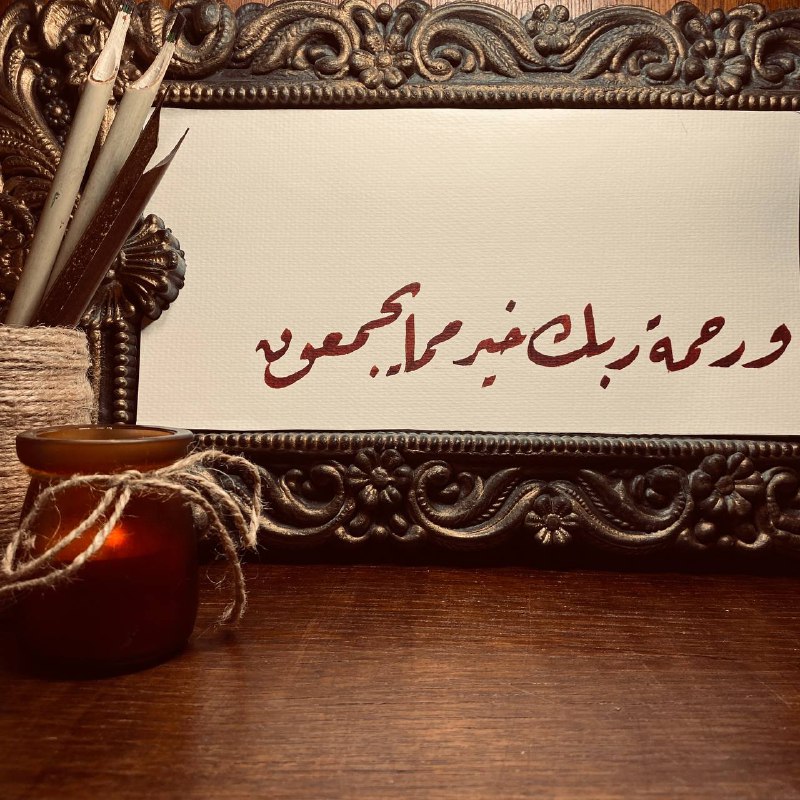 ورحمة ربك خير مما يجمعون